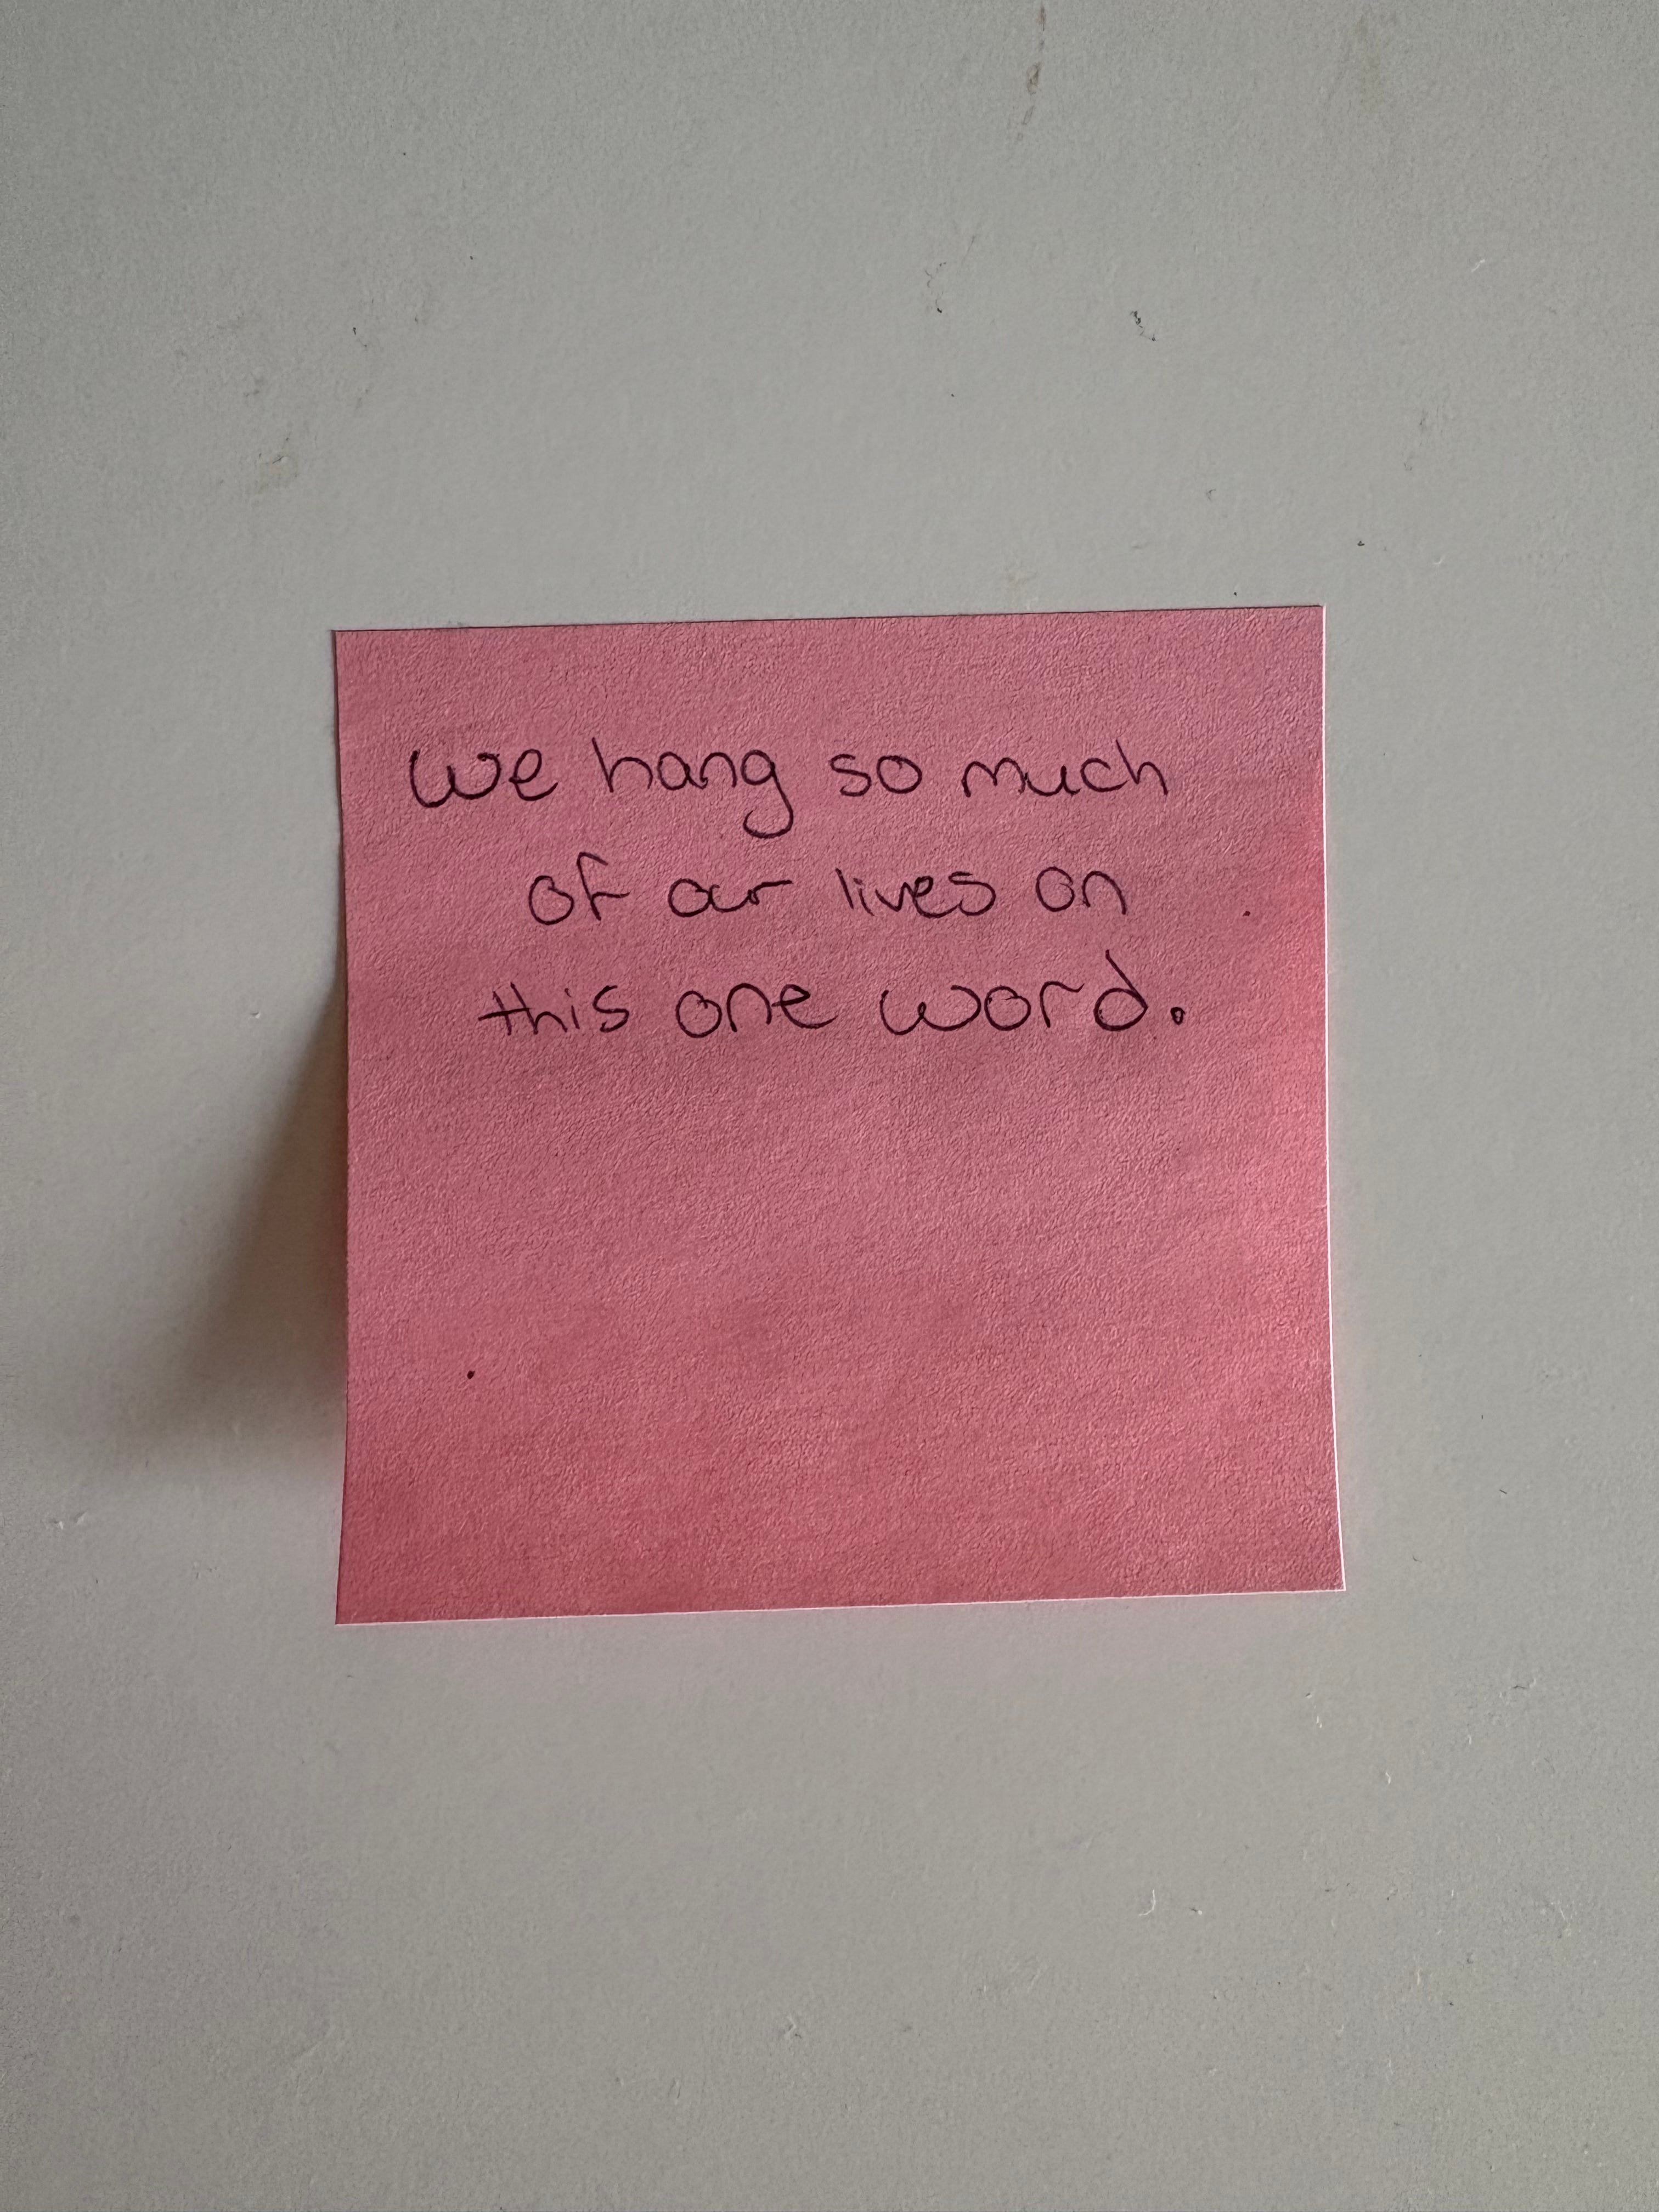 We hang so much
of our lives on
this one word.